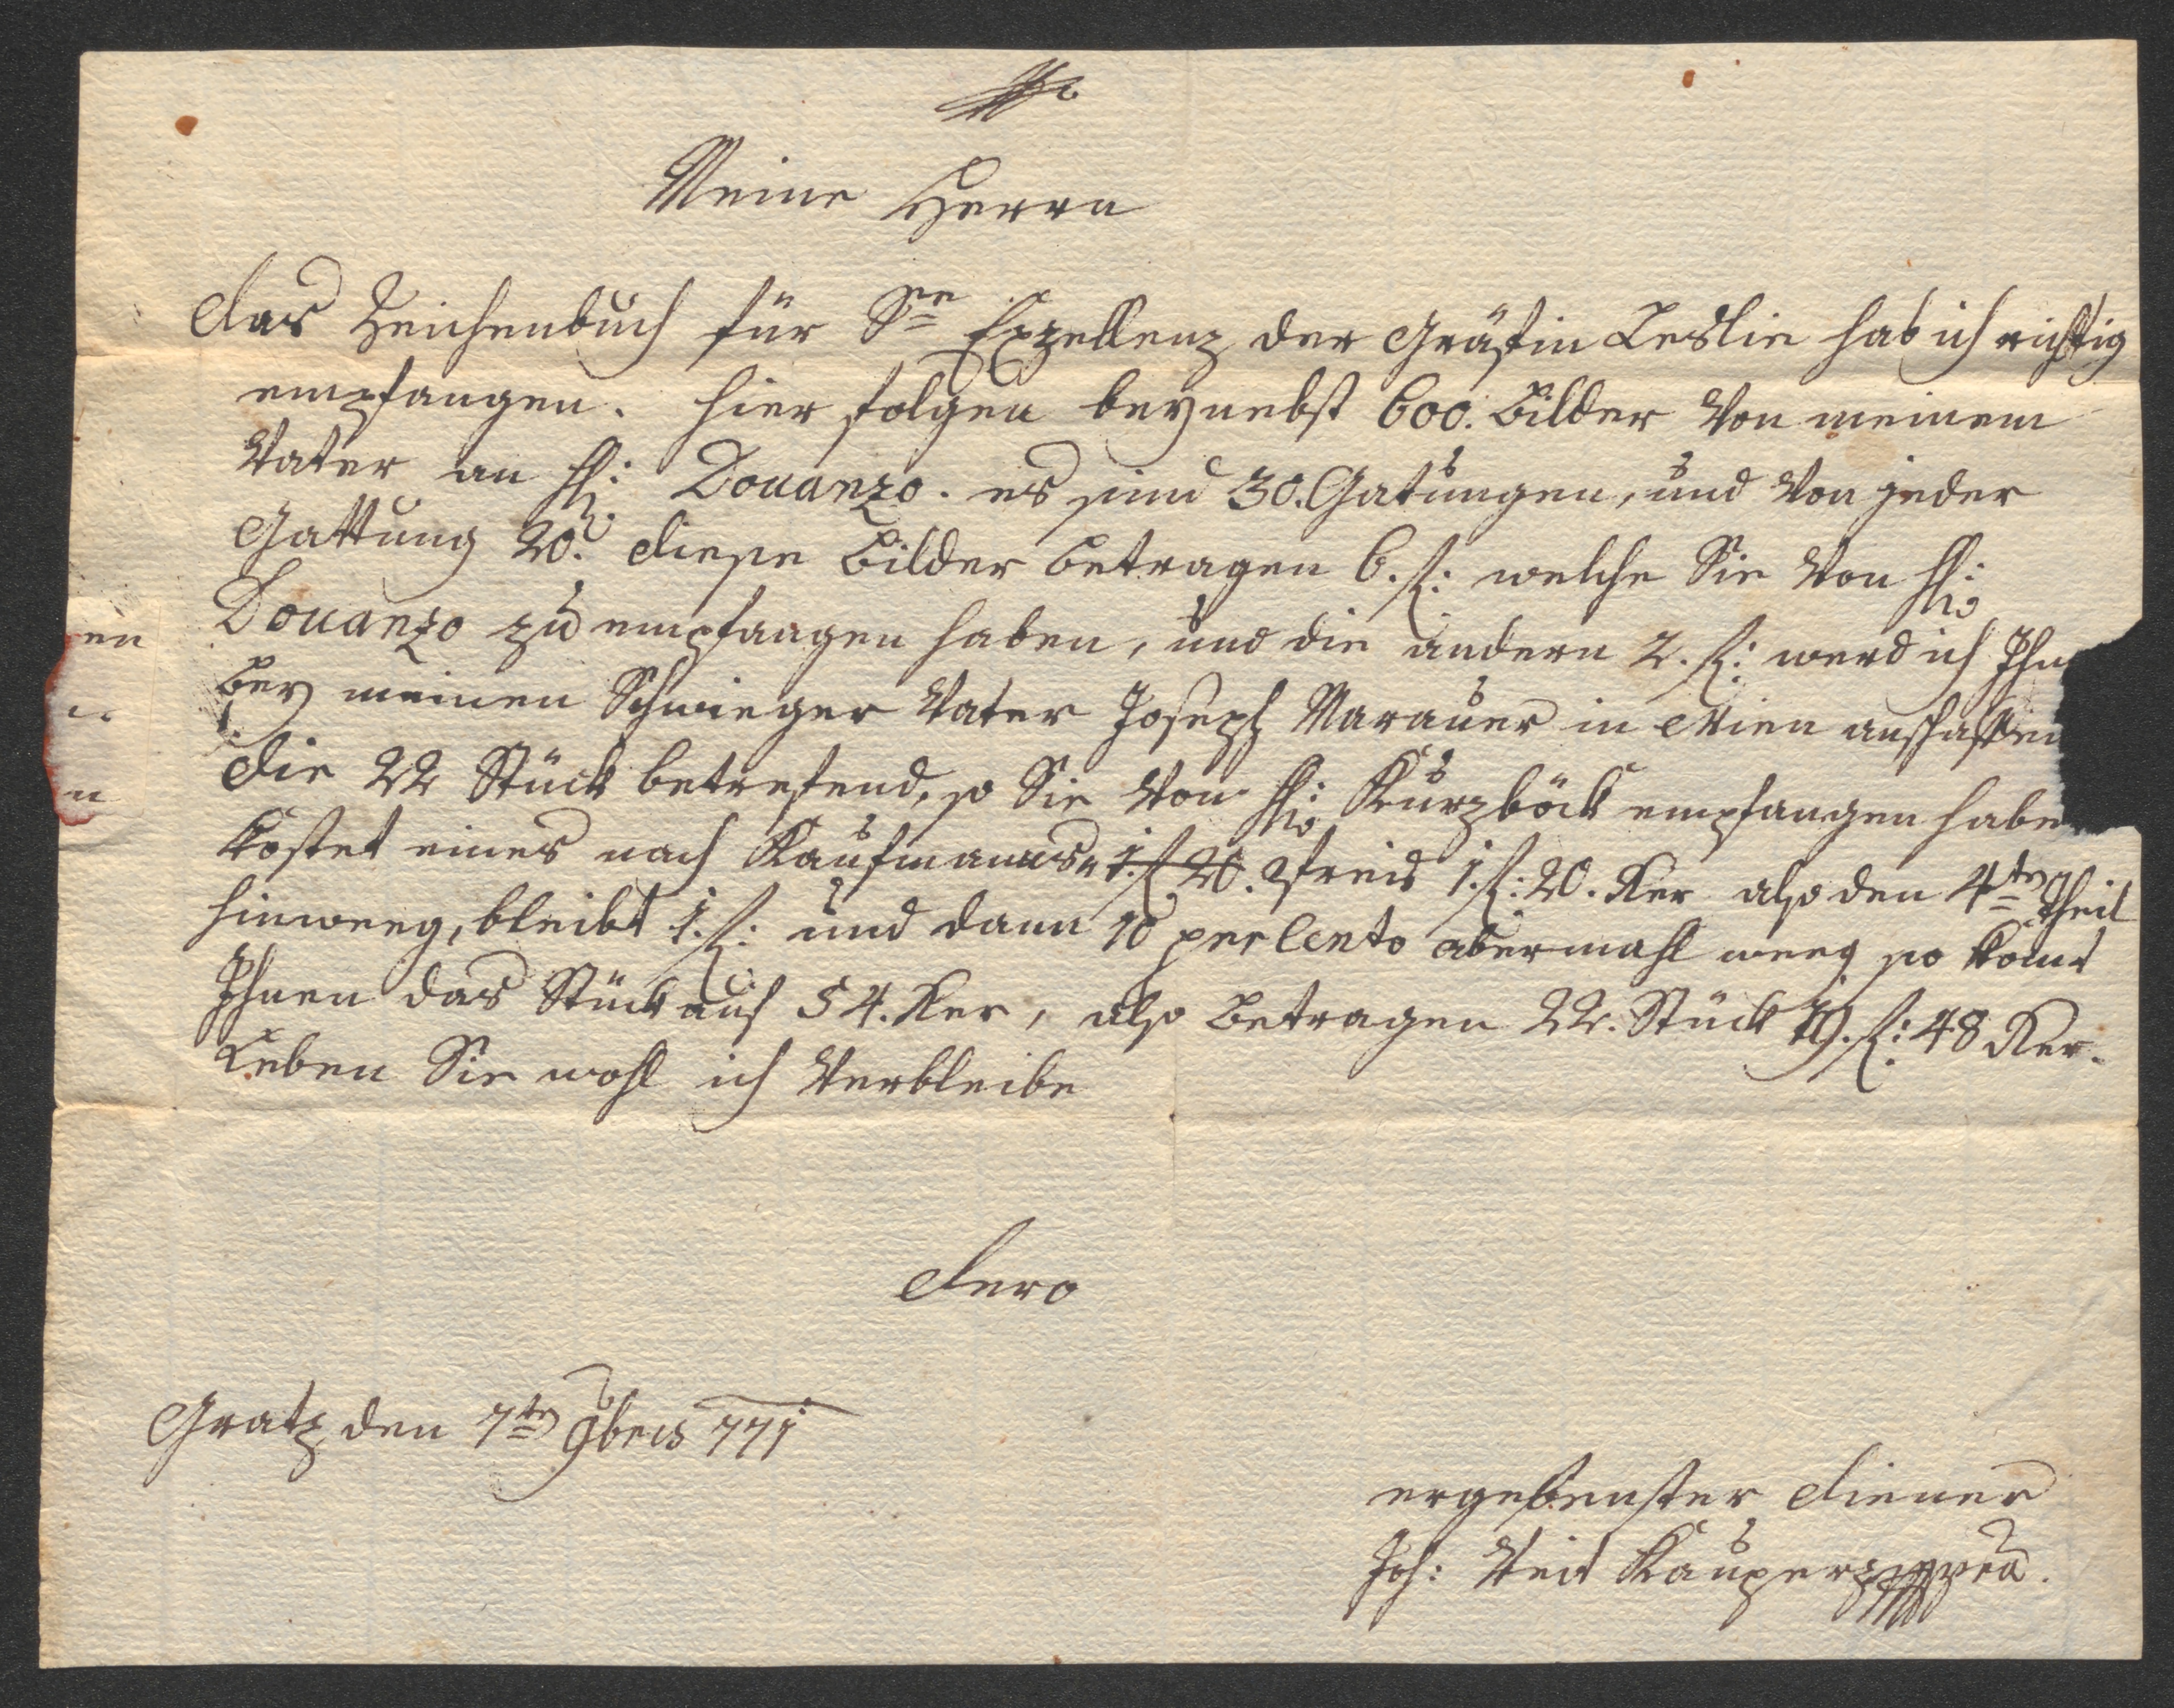 Meine Herrn
Das Zeichenbuch für Se Exzellenz der Gräfin Leslie hab ich richtig
empfangen. hier folgen beynebst 600. Bilder Von meinem
Vater an H: Douanzo. es sind 30. Gatungen, und Von jeder
Gattung 20. diese Bilder betragen 6. f: welche Sie Von H:
Douanzo zu empfangen haben, und die andern 2. f: werd ich Ihn
bey meinen Schwieger Vater Joseph Marauer in Wien anschaffen
Die 22 Stück betrefend, so Sie Von H: Kurzböck empfangen habe
kostet eines nach Kaufmanns 1. f. 20. Preis 1. f: 20. Xer also den 4ten Theil
hinweeg, bleibt 1. f: und dann 10 per Cento abermahl weeg so komt
Ihnen das Stück auf 54. Xer, also betragen 22. Stück 19. f: 48 Xer.
Leben Sie wohl ich Verbleibe
Dero
Gratz den 7ten 9bris 771
ergebenster Diener
Joh: Veit Kauperz
en
n